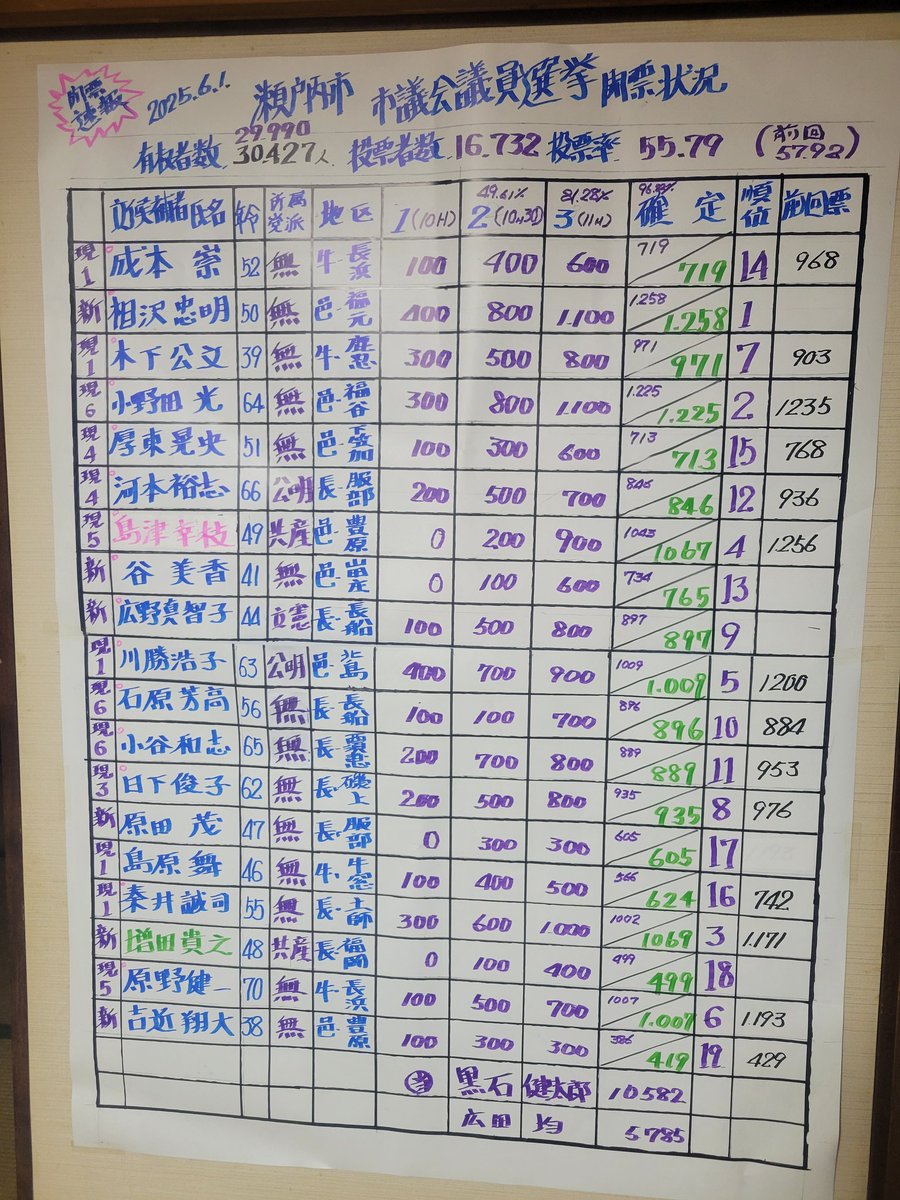 開票速報 2025.6.1. 瀬戸内市 市議会議員選挙 開票状況
有权者数 29990 30427人 投票者数 16.732 投票率 55.79 (前回 57.92)
立候補者氏名 令 所属党派 地区 1(10H) 49.61% 2(10H30) 3(11H) 確定 順位 前回票
現1 成本 崇 52 無 牛・長浜 100 400 600 719 719 14 968
新 相沢忠明 50 無 邑・福元 400 800 1.100 1.258 1.258 1
現1 木下公文 39 無 牛・鹿忍 300 500 800 971 971 7 903
現6 小野田 光 64 無 邑・福谷 300 800 1.100 1.225 1.225 2 1235
現4 厚東晃央 51 無 邑・下笠加 100 300 600 713 713 15 768
現4 河本裕志 66 公明 長・服部 200 500 700 846 846 12 936
現5 島津幸枝 49 共産 邑・豊原 0 200 900 1043 1067 4 1256
新 谷 美香 41 無 邑・山田庄 0 100 600 734 765 13
新 広野真智子 44 立憲 長・長船 100 500 800 897 897 9
現1 川勝浩子 63 公明 邑・北島 400 700 900 1009 1.009 5 1200
現6 石原芳高 56 無 長・長船 100 100 700 896 896 10 884
現6 小谷和志 65 無 長・ 200 700 800 889 889 11 953
現3 日下俊子 62 無 長・磯上 200 500 800 935 935 8 976
新 原田 茂 47 無 長・服部 0 300 300 605 605 17
現1 島原 舞 46 無 牛・牛窓 100 400 500 566 624 16 742
現1 秦井誠司 55 無 長・土師 300 600 1.000 1002 1069 3 1.171
新 増田貴之 48 共産 長・福岡 0 100 400 499 499 18
現5 原野健一 70 無 牛・長浜 100 500 700 1007 1.007 6 1.193
新 吉近翔大 38 無 邑・豊原 100 300 300 386 419 19 429
当 黒石 健太郎 10582
広田 均 5785